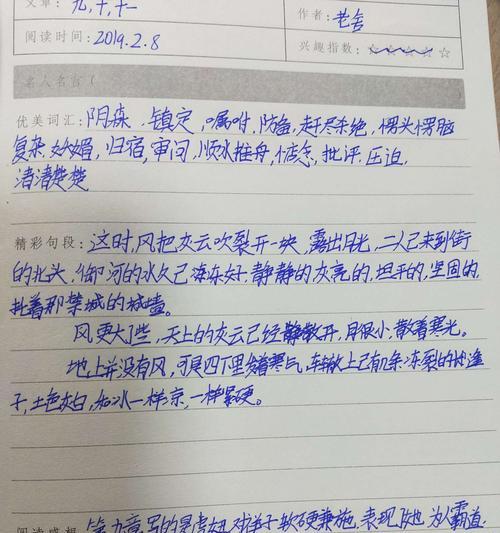 文章：九，十，十一
作者：老舍
阅读时间：2019.2.8
兴趣指数：☆☆☆☆☆
名人名言（
优美词汇：阴森，镇定，嘱咐，防备，赶尽杀绝，愣头愣脑
复杂，妩媚，归宿，审问，顺水推舟，惦念，批评，压迫，
清清楚楚
精彩句段：这时，风把灰云吹裂开一块，露出月光，二人已来到街
的北头，御河的水久已冻好，静静的灰亮的，坦平的，坚固的，
托着那禁城的城墙。
风更大了些，天上的灰云已经散开，月很小，散着寒光。
地上并没有风，可是四下里发着寒气，车辙上已有几条冻裂的
子，土色灰白，和冰一样凉，一样坚硬。
阅读感想：第九章写的是虎妞对祥子软硬兼施，表现她为人霸道